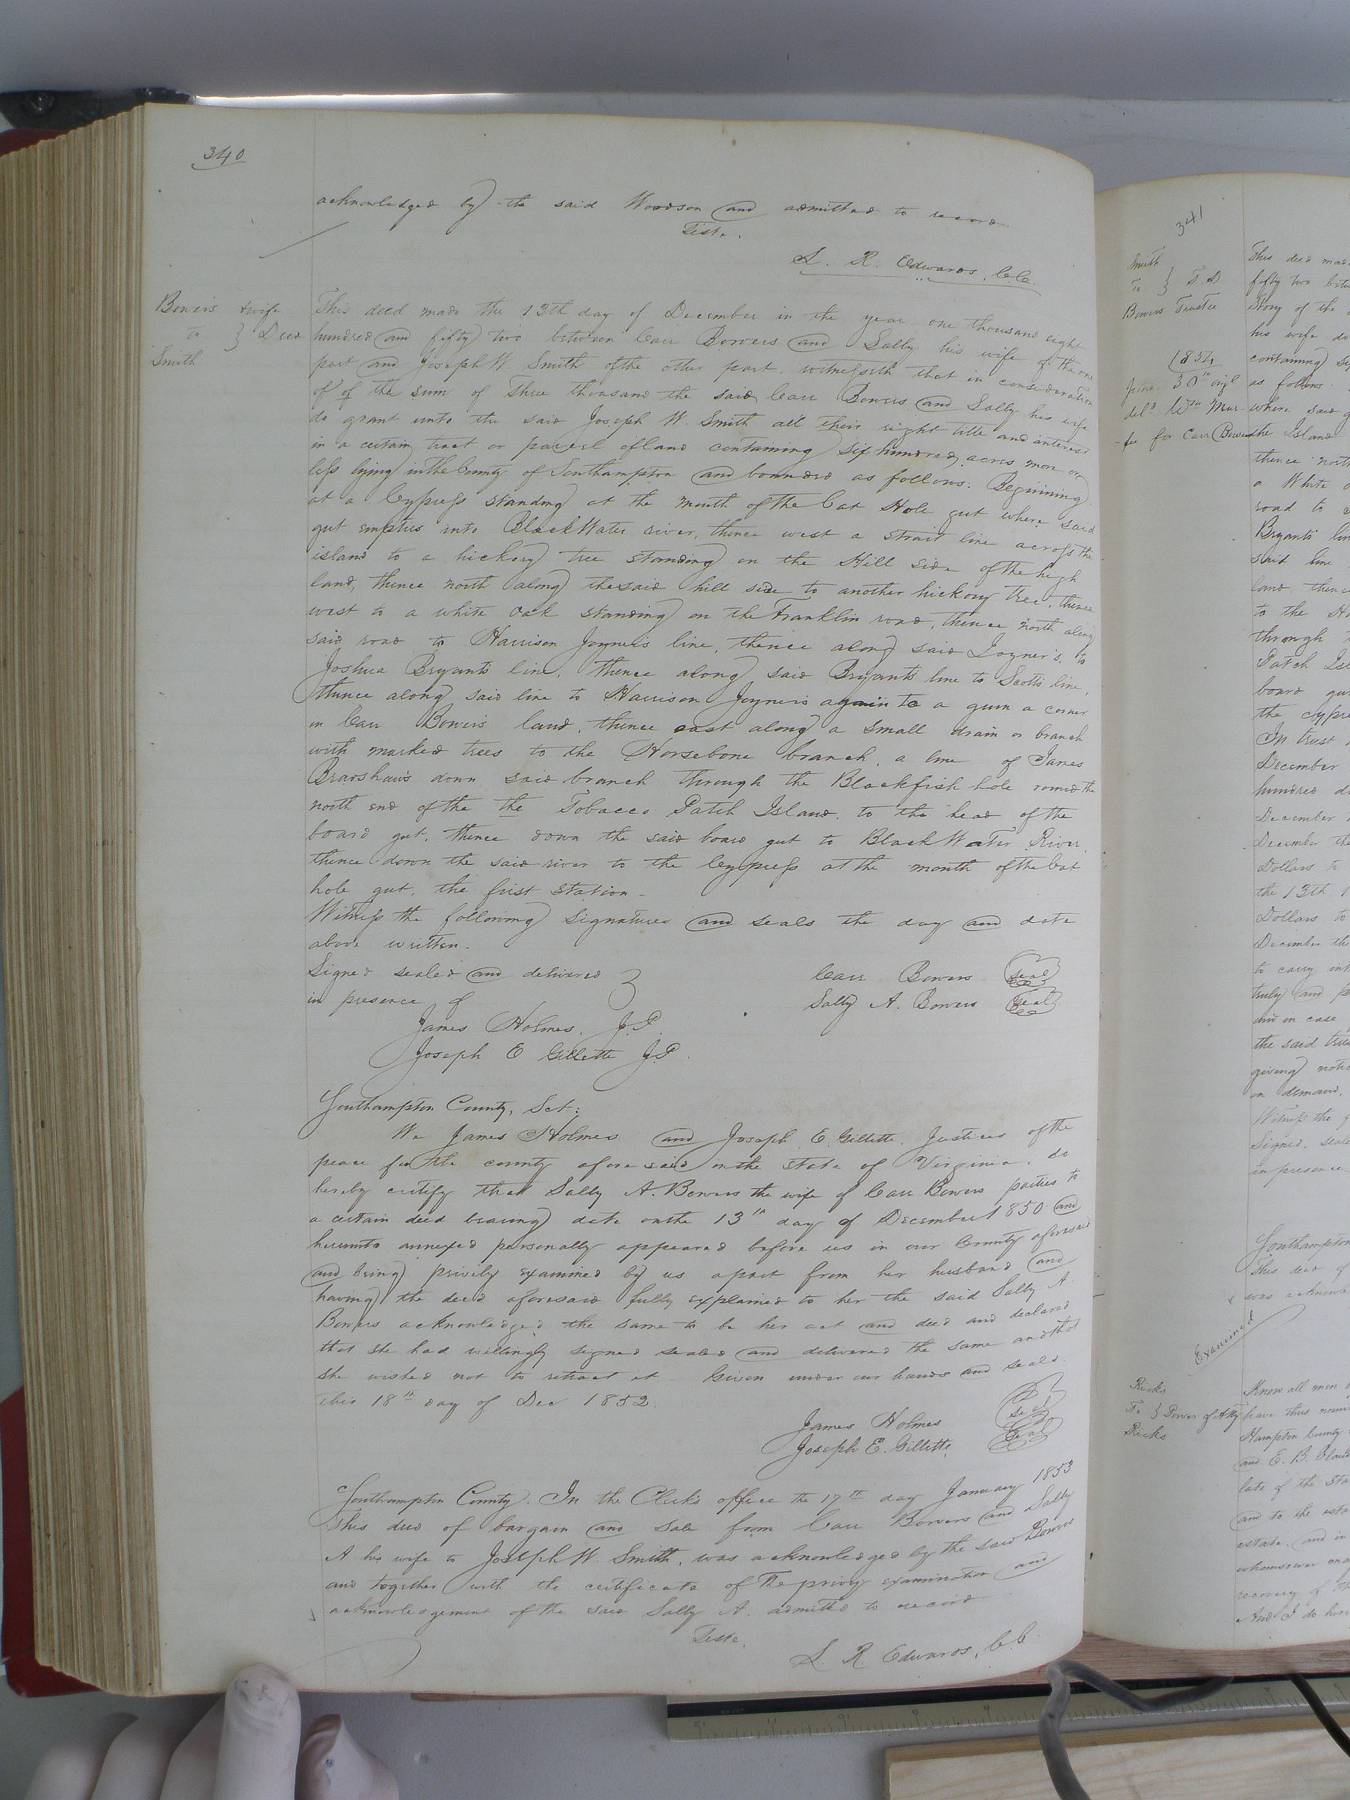 340
acknowledged by the said Woodson and admitted to record
Teste.
L. R. Edwards, C.C.
Bowers & wife
to } Deed
Smith
This deed made the 13th day of December in the year one thousand eight
hundred and fifty two between Carr Bowers and Sally his wife of the one
part and Joseph W. Smith of the other part. witnesseth that in consideration
of of the sum of Three thousand the said Carr Bowers and Sally his wife
do grant unto the said Joseph W. Smith all their right title and interest
in a certain tract or parcel of land containing six hundred acres more or
less lying in the County of Southampton and bounded as follows: Beginning
at a Cypress standing at the mouth of the Cat Hole gut where said
gut empties into Black Water river, thence west a strait line across the
island to a hickory tree standing on the Hill side of the high
land, thence north along the said hill side to another hickory tree, thence
west to a white oak standing on the Franklin road, thence north along
said road to Harrison Joyner's line, thence along said Joyner's, to
Joshua Bryant's line, thence along said Bryant's line to Scott's line,
thence along said line to Harrison Joyner's again to a gum a corner
in Carr Bowers land, thence east along a small drain or branch
with marked trees to the Horsebone branch, a line of James
Bradshaw's down said branch through the Blackfish hole round the
north end of the the Tobacco Patch Island, to the head of the
board gut, thence down the said board gut to Black Water River,
thence down the said river to the Cypress at the mouth of the Cat
hole gut, the first station.
Witness the following signatures and seals the day and date
above written.
Signed sealed and delivered } Carr Bowers Seal
in presence of Sally A. Bowers Seal
James Holmes, J.P.
Joseph E Gillette J.P.
Southampton County, Sct:
We James Holmes and Joseph E. Gillette, Justices of the
peace for the county aforesaid in the state of Virginia, do
hereby certify that Sally A. Bowers the wife of Carr Bowers parties to
a certain deed bearing date on the 13th day of December 1850 and
hereunto annexed personally appeared before us in our County aforesaid
and being privily examined by us apart from her husband and
having the deed aforesaid fully explained to her the said Sally A
Bowers acknowledged the same to be her act and deed and declared
that she had willingly signed sealed and delivered the same and that
she wished not to retract it. Given under our hands and seals
this 18th day of Dec 1852.
James Holmes Seal
Joseph E. Gillette Seal
Southampton County. In the Clerk's office the 17th day January 1853
This deed of bargain and sale from Carr Bowers and Sally
A his wife to Joseph W. Smith, was acknowledged by the said Bowers
and together with the certificate of the privy examination and
acknowledgement of the said Sally A. admitted to record
Teste.
L R Edwards, C.C.
341
Smith
to } T. D
Bowers Trustee
This deed made
fifty two betw
Story of the
his wife do
containing
as follows
where said g
the Island
thence north
a White o
road to
Bryants lin
said line
land thence
to the
through
Patch Isl
board gut
the cypre
In trust
December
hundred d
December
December the
Dollars to
the 13th
Dollars to
December the
to carry int
truly and
and in case
the said trus
giving noti
on demand.
Witness the
Signed, seale
in presence
Southampton
This deed of
was acknow
Examined
Ricks
To } Power of Atty
Ricks
Know all men
have thus nom
Hampton County
and E. B.
late of the Sta
and to the esta
estate, and in
whomsoever
recovery of
And I do her